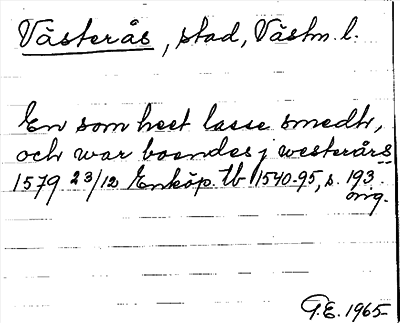 Västerås, stad, Västm. l.
En som heet lasse smedh,
och war boendes j westerårs
1579 23/12 Enköp. tb 1540-95, s. 193.
orig.
G.E. 1965